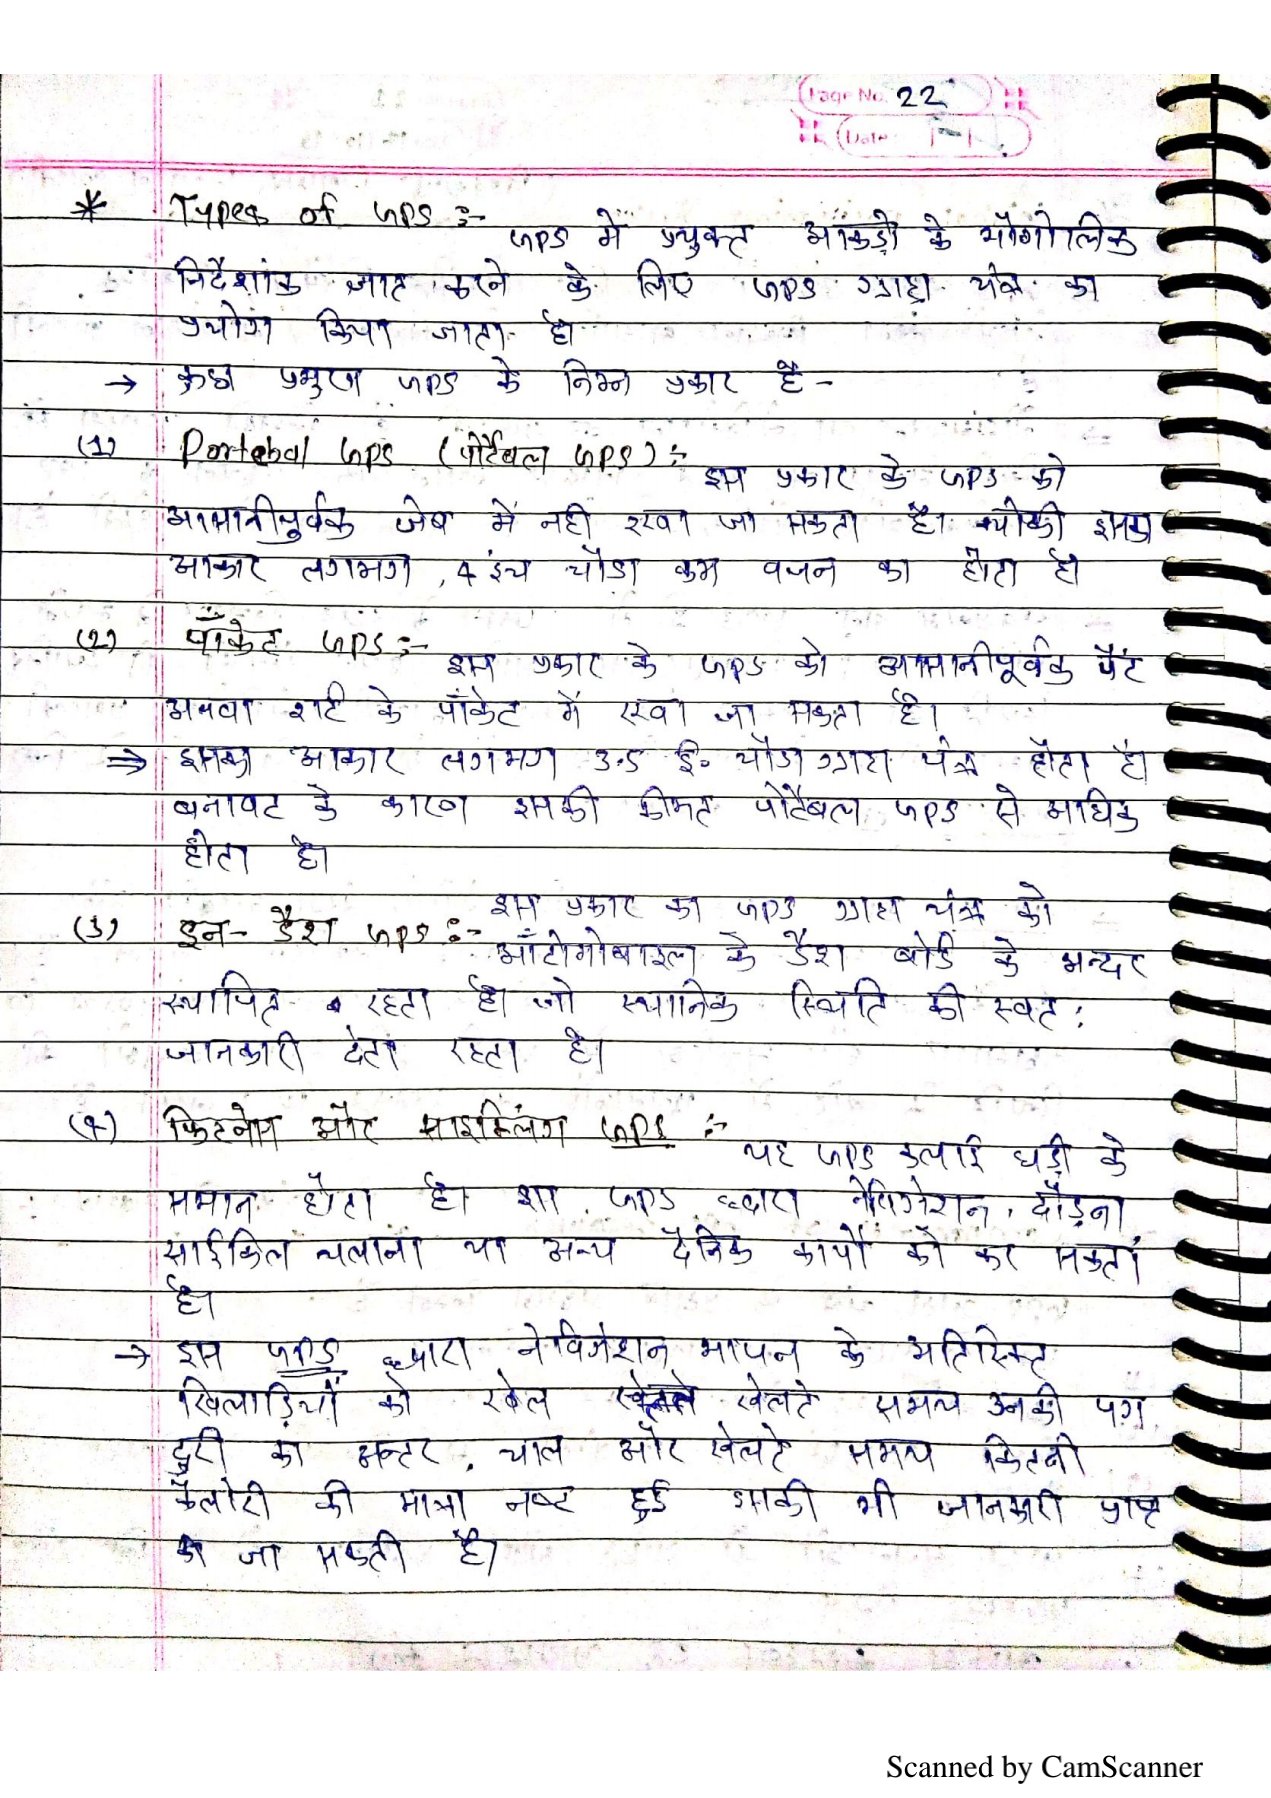 Page No. 22
Date
* Types of GPS :-
GPS में प्रयुक्त आंकड़ो के भौगोलिक
निर्देशांक ज्ञात करने के लिए GPS ग्राही यंत्र का
प्रयोग किया जाता है।
→ कुछ प्रमुख GPS के निम्न प्रकार है -
(1) Portebal GPS (पोर्टेबल GPS) :-
इस प्रकार के GPS को
आसानीपूर्वक जेब में नही रखा जा सकता है। क्योकी इसका
आकार लगभग 4 इंच चौडा कम वजन का होता है।
(2) पॉकेट GPS :-
इस प्रकार के GPS को आसानीपूर्वक पैंट
अथवा शर्ट के पॉकेट में रखा जा सकता है।
⇒ इसका आकार लगभग 3.5 इं. चौडा ग्राही यंत्र होता है।
बनावट के कारण इसकी कीमत पोर्टेबल GPS से अधिक
होता है।
(3) इन- डैश GPS :-
इस प्रकार का GPS ग्राही यंत्र को
ऑटोमोबाइल के डैश बोर्ड के अन्दर
स्थापित रहता है। जो स्थानिक स्थिति की स्वत:
जानकारी देता रहता है।
(4) फिटनेस और साइक्लिंग GPS :-
यह GPS कलाई घड़ी के
समान होता है। इस GPS द्वारा नेविगेशन, दौड़ना
साईकिल चलाना या अन्य दैनिक कार्यों को कर सकता
है।
→ इस GPS द्वारा नेविगेशन मापन के अतिरिक्त
खिलाड़ियों को खेल खेलते समय उनकी पग
दुरी का अन्तर, चाल और खेलते समय कितनी
कैलोरी की मात्रा नष्ट हुई इसकी भी जानकारी प्राप्त
की जा सकती है।
Scanned by CamScanner